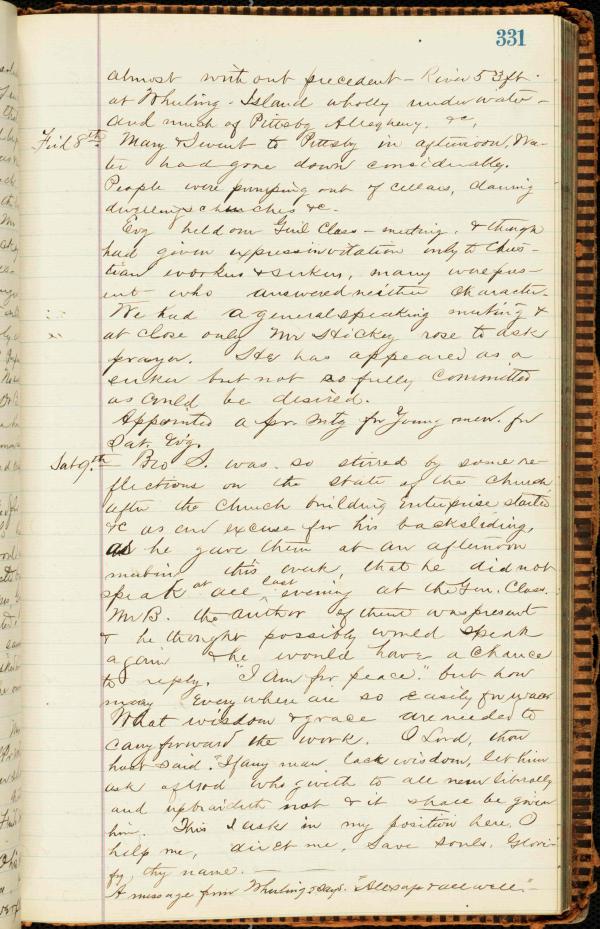 331
almost without precedent - River 53 ft.
at Wheeling - Island wholly under water -
and much of Pittsbg Allegheny. &c,
Frid 8th. Mary & I went to Pittsbg in afternoon, Wa-
ter had gone down considerably.
People were pumping out of cellars,
dwellings churches &c -
Evg held our Genl Class-meeting. & though
had given express invitation only to Chris-
tian workers & seekers, many were pres-
ent who answered neither character.
We had a general speaking meeting &
at close only Mr Hickey rose to ask
prayer. He has appeared as a
seeker but not so fully committed
as could be desired.
Appointed a pr. mtg for Young men. for
Sat. Evg.
Sat 9.th Bro S. was so stirred by some re-
flections on the state of the church
after the church building Enterprise started
&c as an excuse for his backsliding,
as he gave them at an afternoon
meeting this week, that he did not
speak at all last evening at the Gen. Class.
Mr B. the author of them was present
& he thought possibly would speak
again & he would have a chance
to reply. "I am for peace." but how
many Everywhere are so easily for war
What wisdom & grace are needed to
carry forward the work. O Lord, thou
hast said "If any man lack wisdom, let him
ask of God who giveth to all men liberally
and upbraideth not & it shall be given
him. This I ask in my position here. O
help me, direct me, Save souls. Glori-
fy, thy name.
A message from Wheeling says. "All safe & all well" -